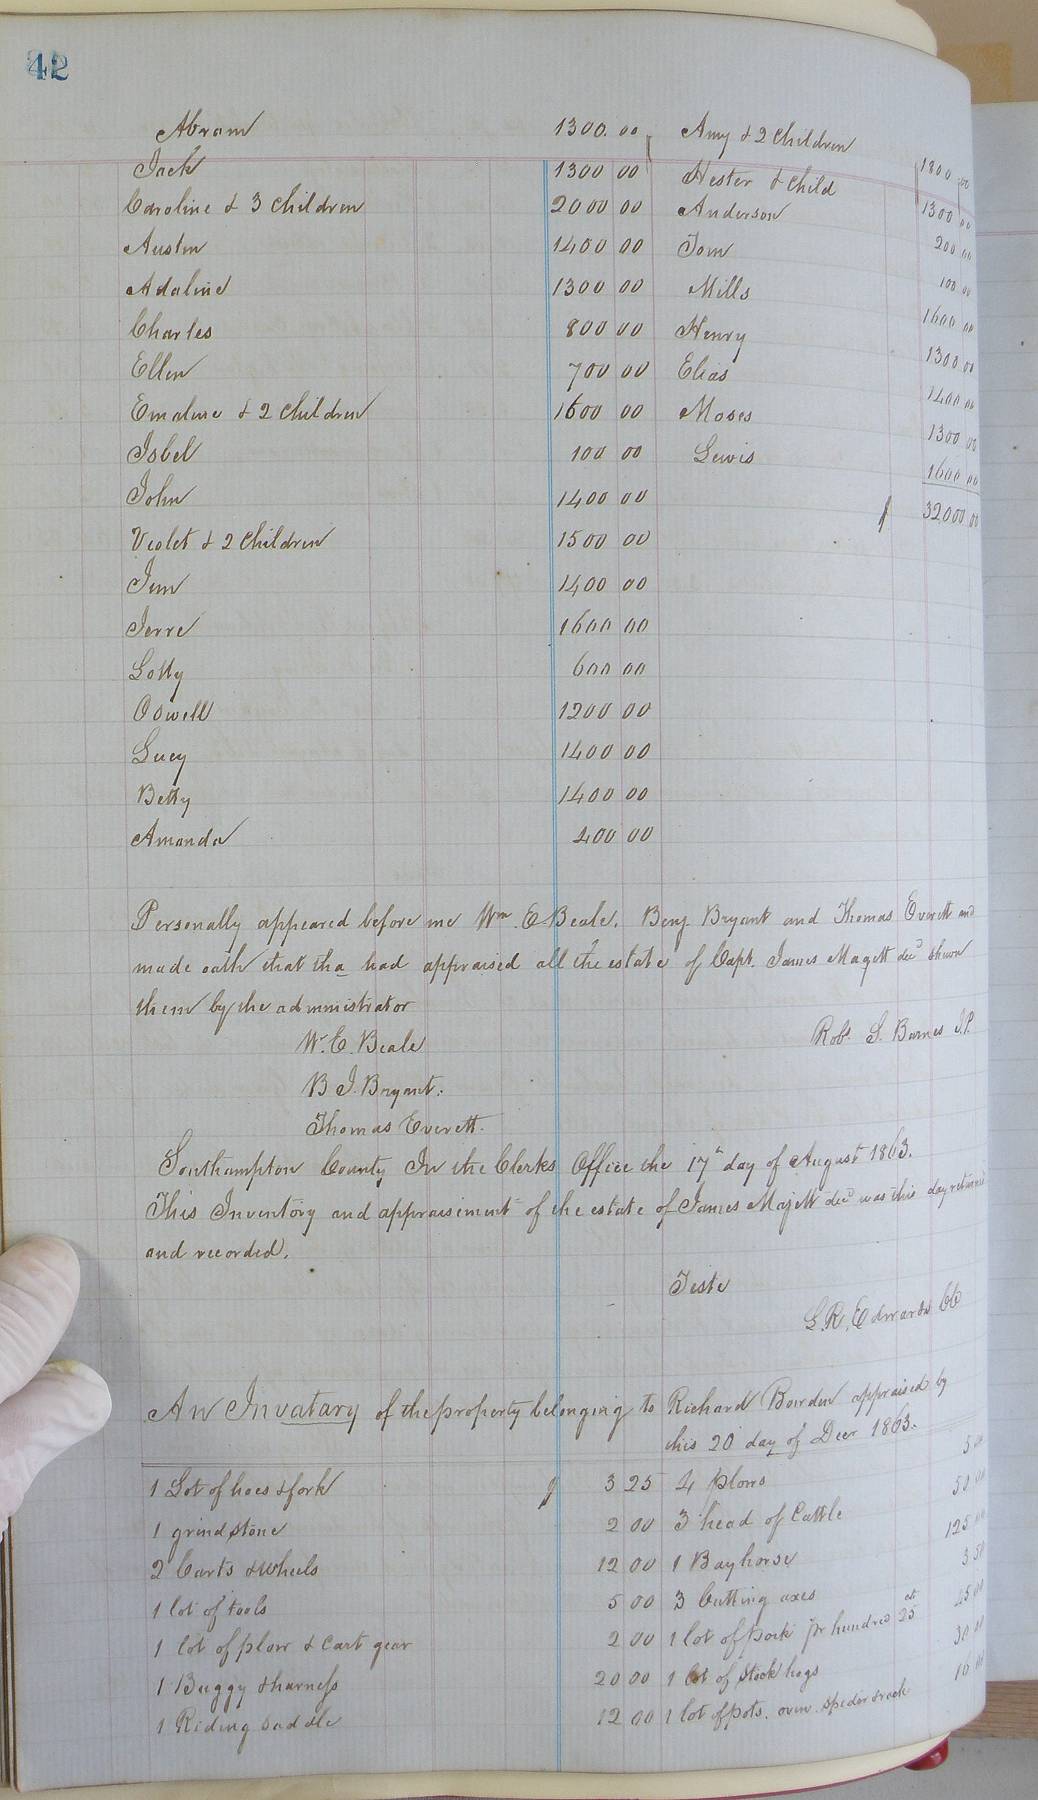 42
Abram 1300.00 Amy & 2 Children 1800.00
Jack 1300 00 Hester & Child 1300 00
Caroline & 3 Children 2000 00 Anderson 200 00
Austin 1400 00 Tom 100 00
Adaline 1300 00 Mills 1600 00
Charles 800 00 Henry 1300 00
Ellen 700 00 Elias 1400 00
Emaline & 2 Children 1600 00 Moses 1300 00
Isbel 100 00 Lewis 1600 00
John 1400 00 $ 32000 00
Violet & 2 Children 1500 00
Jim 1400 00
Jerre 1600 00
Lotty 600 00
Oswell 1200 00
Lucy 1400 00
Betty 1400 00
Amanda 400 00
Personally appeared before me Wm E Beale. Benj. Bryant and Thomas Everett and
made oath that tha had appraised all the estate of Capt. James Magett decd shown
them by the administrator
W. E. Beale Robt. S. Barnes J.P.
B J. Bryant.
Thomas Everett.
Southampton County In the Clerks Office the 17th day of August 1863.
This Inventory and appraisement of the estate of James Majett decd was this day returned
and recorded.
Teste
L. R. Edwards CC
An Invatary of the property belonging to Richard Bowden appraised by
this 20 day of Decr 1863.
1 Lot of hoes & fork $ 3 25 4 plows 5 00
1 grind stone 2 00 3 head of Cattle 50 00
2 Carts & wheels 12 00 1 Bay horse 125 00
1 lot of tools 5 00 3 Cutting axes 3 50
1 lot of plow & Cart gear 2 00 1 lot of pork pr hundred at 25 25 00
1 Buggy & harness 20 00 1 lot of stock hogs 30 00
1 Riding saddle 12 00 1 lot of pots. oven. spider & rack 10 00